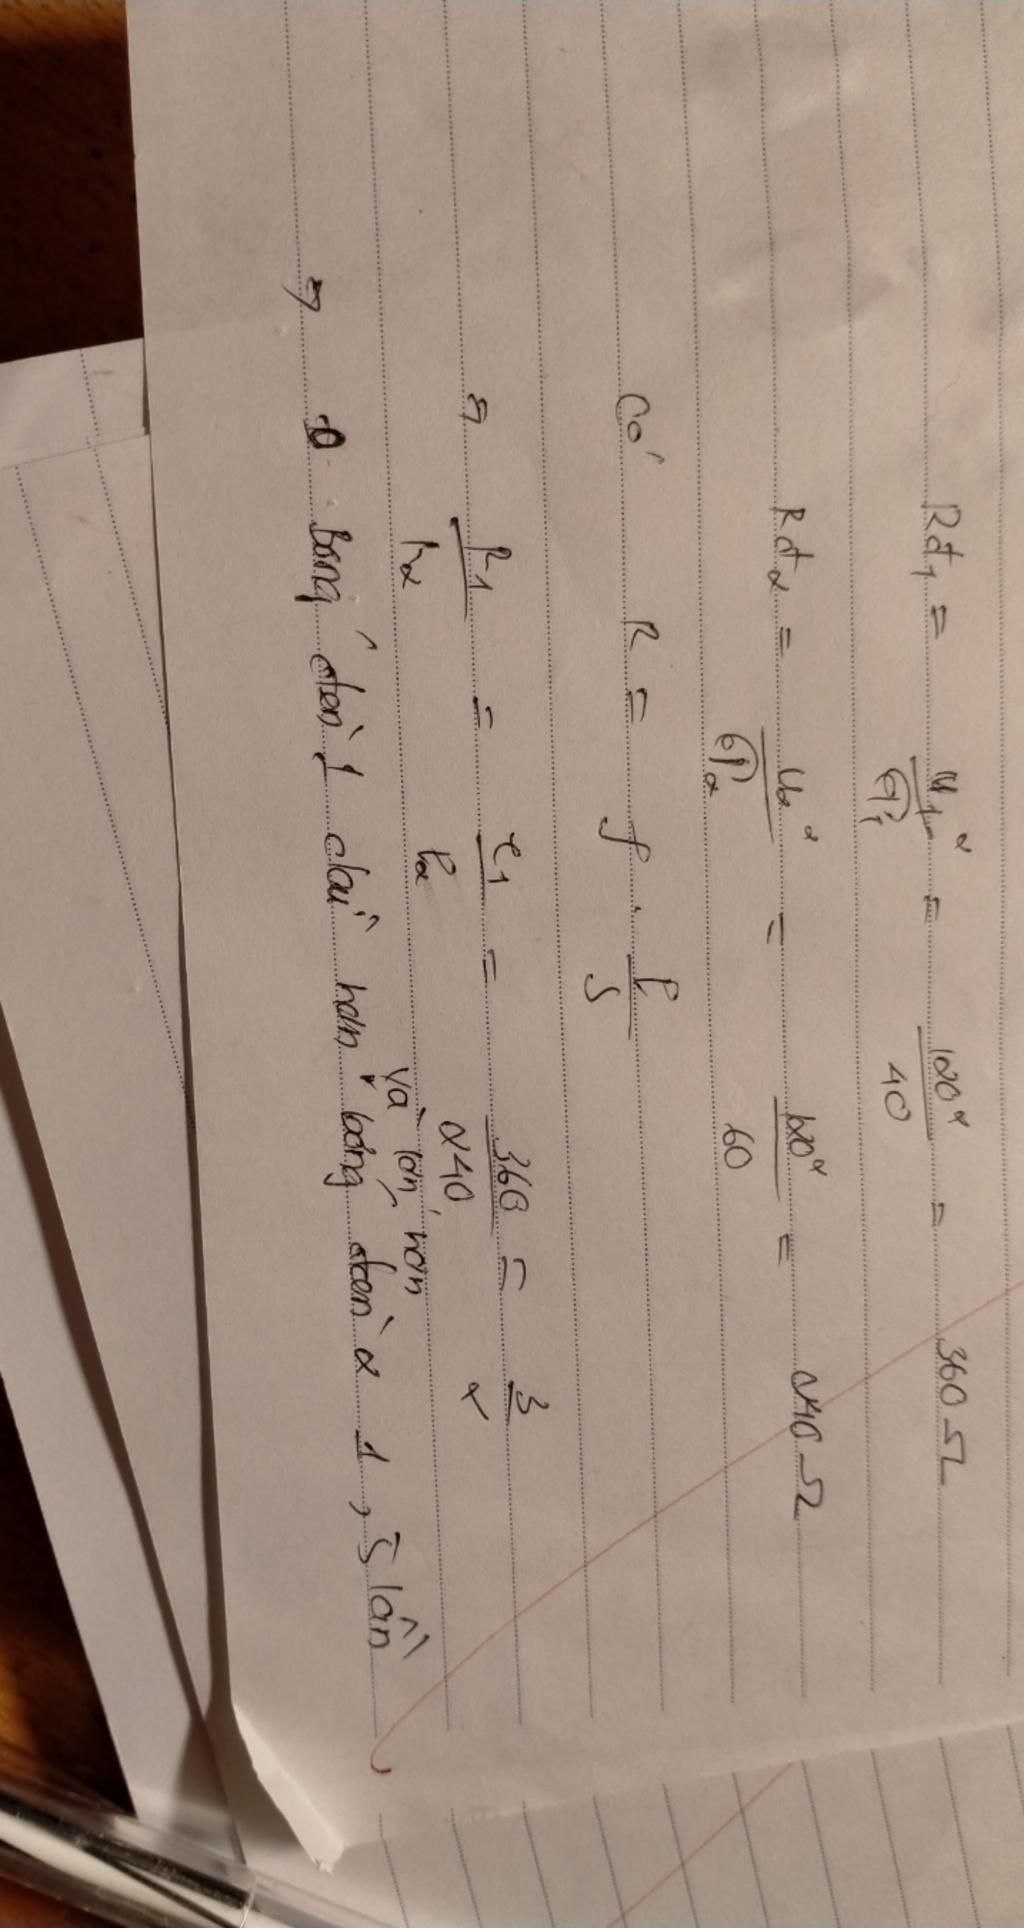 Rđ₁ = U₁² / 𝒫₁ = 120² / 40 = 360 Ω
Rđ₂ = U₂² / 𝒫₂ = 120² / 60 = 240 Ω
Có R = ρ . l / S
⇒ R₁ / R₂ = l₁ / l₂ = 360 / 240 = 3 / 2
và lớn hơn
⇒ Bóng đèn 1 dài hơn bóng đèn 2 1,5 lần